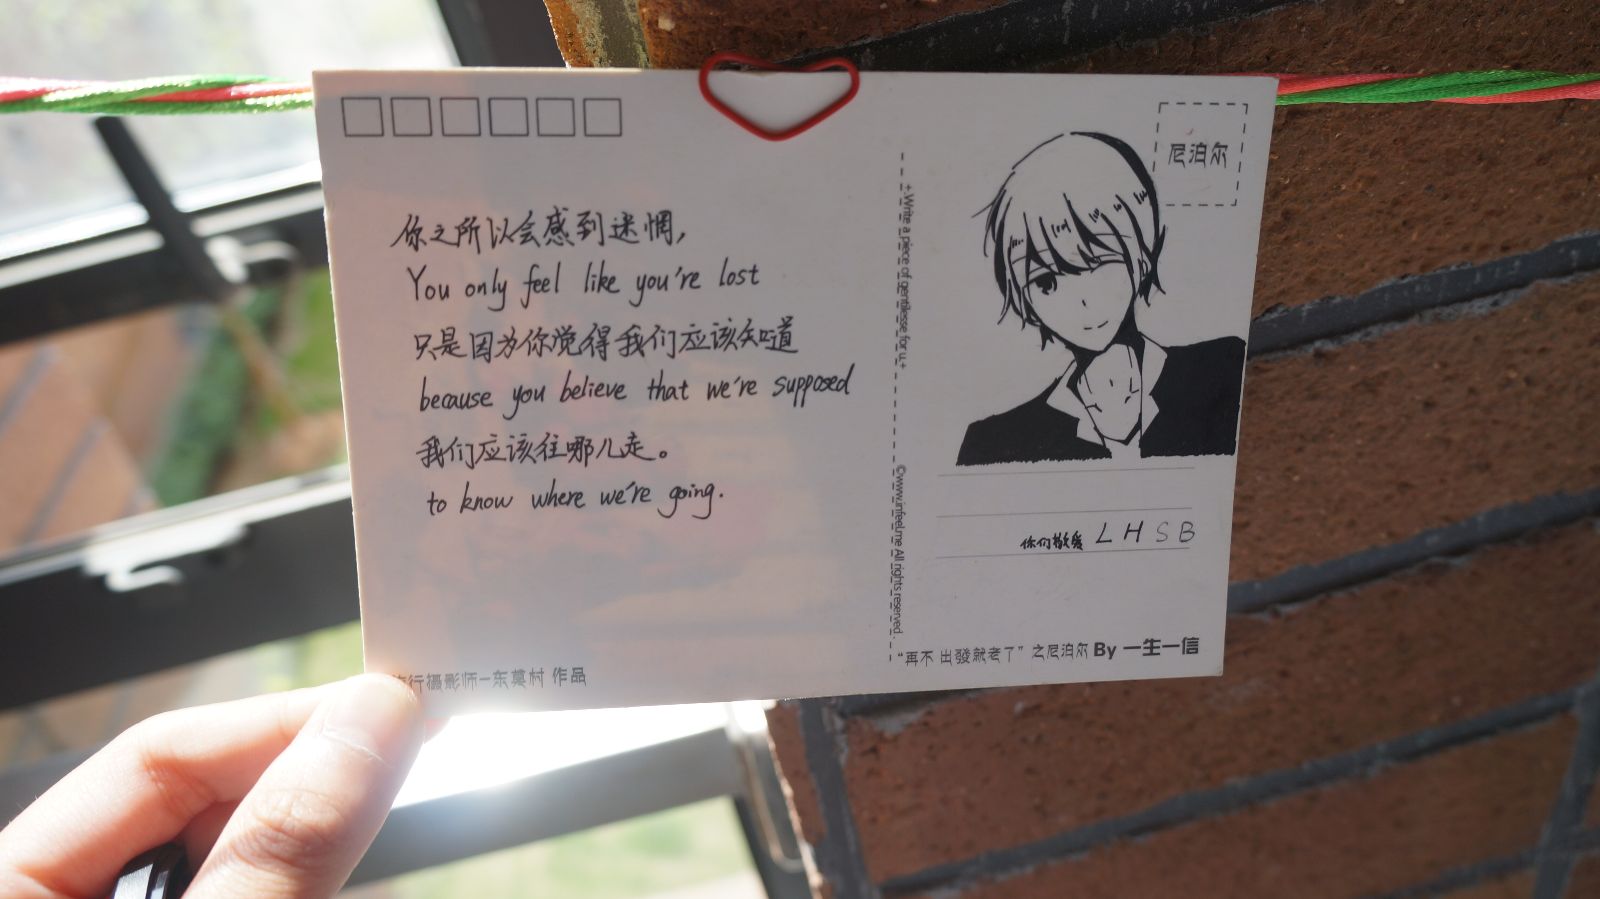 你之所以会感到迷惘，
You only feel like you're lost
只是因为你觉得我们应该知道
because you believe that we're supposed
我们应该往哪儿走。
to know where we're going.
行摄影师—东莫村 作品
+.Write a piece of gentilesse for u.+
©www.infeel.me All rights reserved.
尼泊尔
你们敬爱 L H S B
“再不 出發就老了”之尼泊尔 By 一生一信